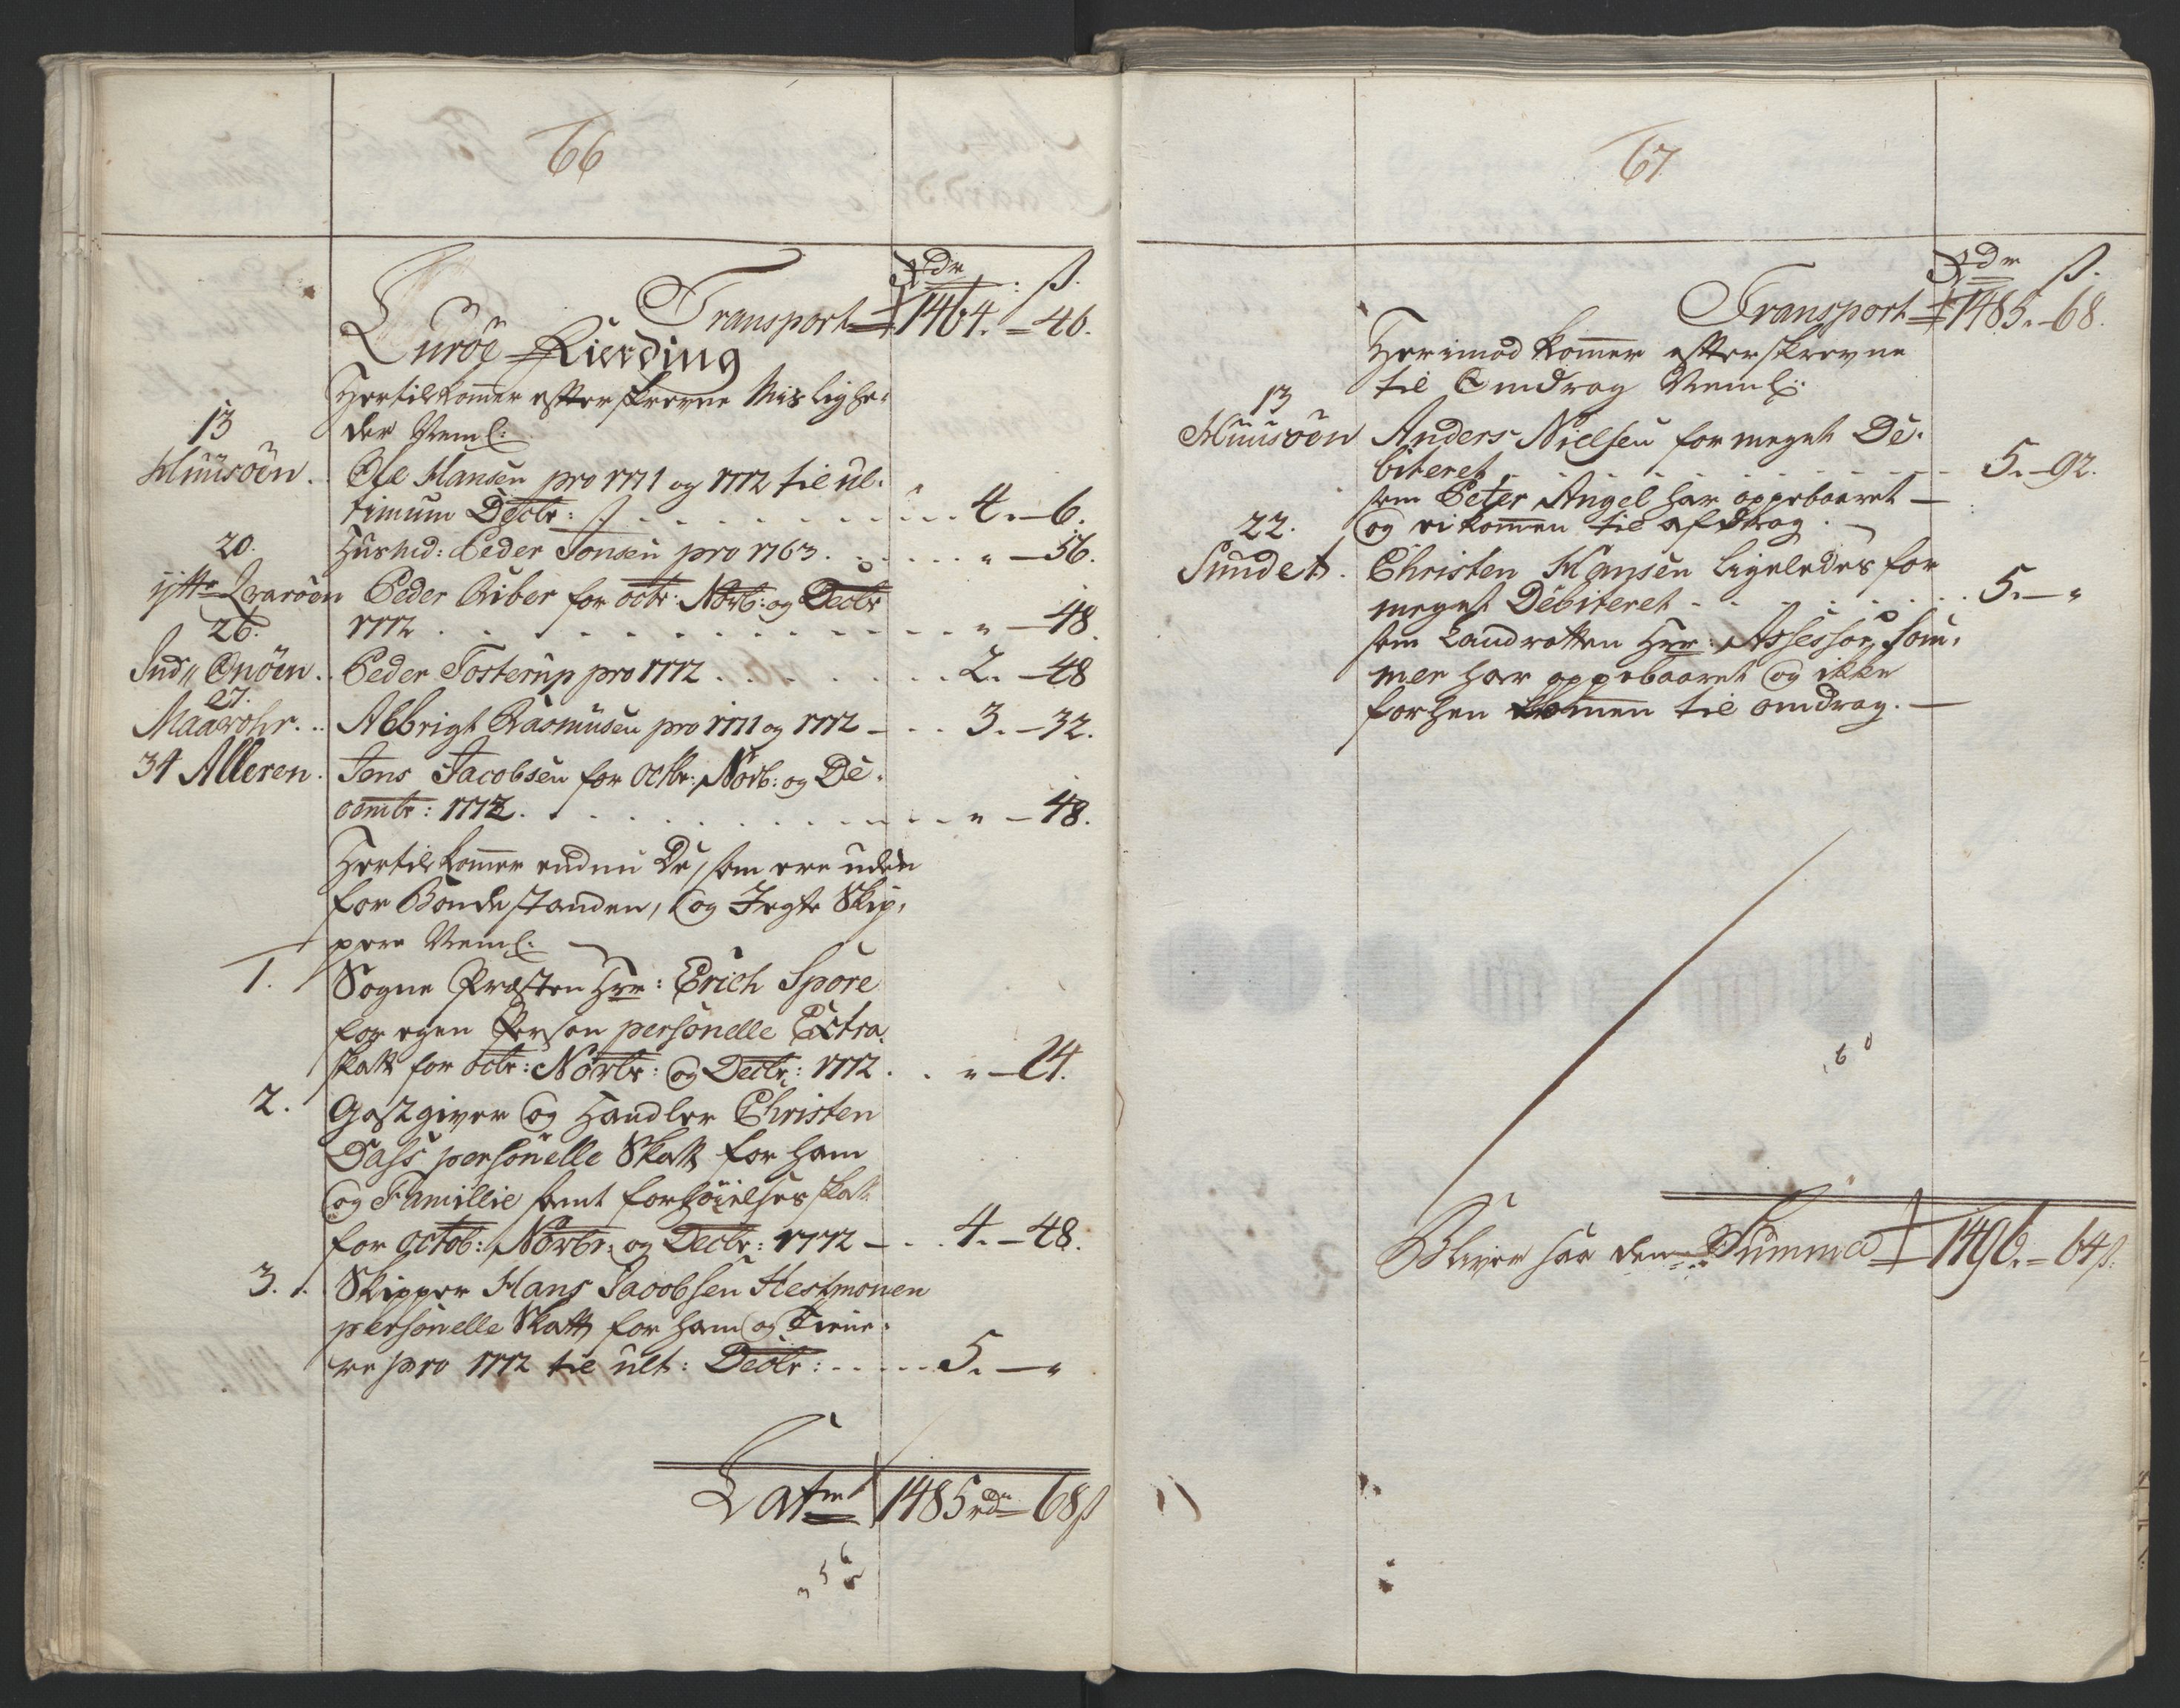 66
Rdr ß.
Transport 1464. - 46.
Lurøe Fierding
Hertil kommer efterskrevne Mislighe-
der Neml:
13
Huusöen. Ole Hansen pro 1771 og 1772 til ul-
timum Decbr: 4. - 6.
20. Huusmd: Peder Jonsen pro 1763. " - 56.
ytte Qvaröen Peder Riber for octr: Novb: og Decbr
26. 1772 " - 48.
Ind" Onöen. Peder Tosterup pro 1772 2. - 48
27.
Maarohr. Abbrigt Rasmusen pro 1771 og 1772 - 3. - 32.
34 Alleren. Jens Jacobsen for Octbr: Novb: og De-
cembr: 1772. " - 48.
Hertil kommer endnu De, som ere uden
for Bondestanden, og Jegte Skip-
pere Neml:
1. Sogne Præsten Hrr: Erich Spore
for egen Person personelle Extra
skatt for octr: Novbr: og Decbr: 1772. " - 24.
2. Gastgiver og Handler Christen
Dass personelle Skatt for ham
og Famillie samt forhøielses skat
for octob: Novbr: og Decbr: 1772 - 4. - 48.
3. Skipper Hans Jacobsen Hestmonen
personelle Skatt for ham og Tiene-
re pro 1772 til ult: Decbr: 5. - "
Latm 1485 rdr 68 ß
67
Rdr ß.
Transport 1485. - 68.
Herimod kommer efterskrevne
til Omdrag Neml:
13
Huusöen Anders Nielsen for meget De-
biteret 5. - 92.
som Peter Angel har oppebaaret -
22. og ei kommen til afdrag. -
Sundet. Christen Hansen ligeledes for
meget Debiteret 5. - "
som Landrotten Hrr: Assessor Som-
mer har oppebaaret og ikke
forhen kommen til omdrag. -
Bliver saa den Summa 1496. - 64 ß.